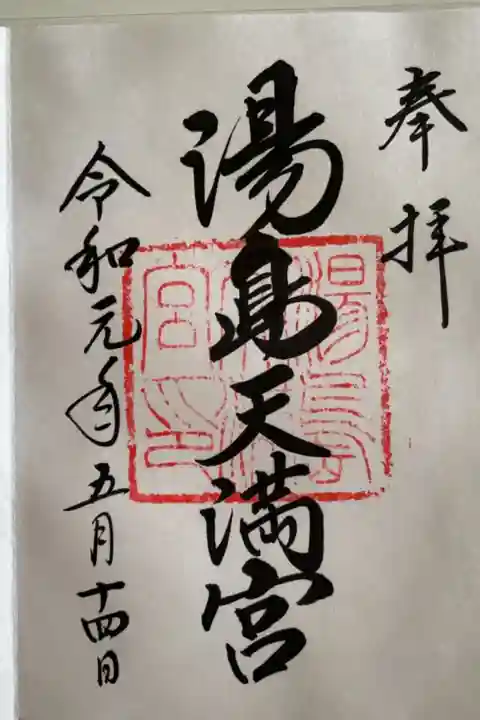 奉拝
湯島天満宮
令和元年五月十四日